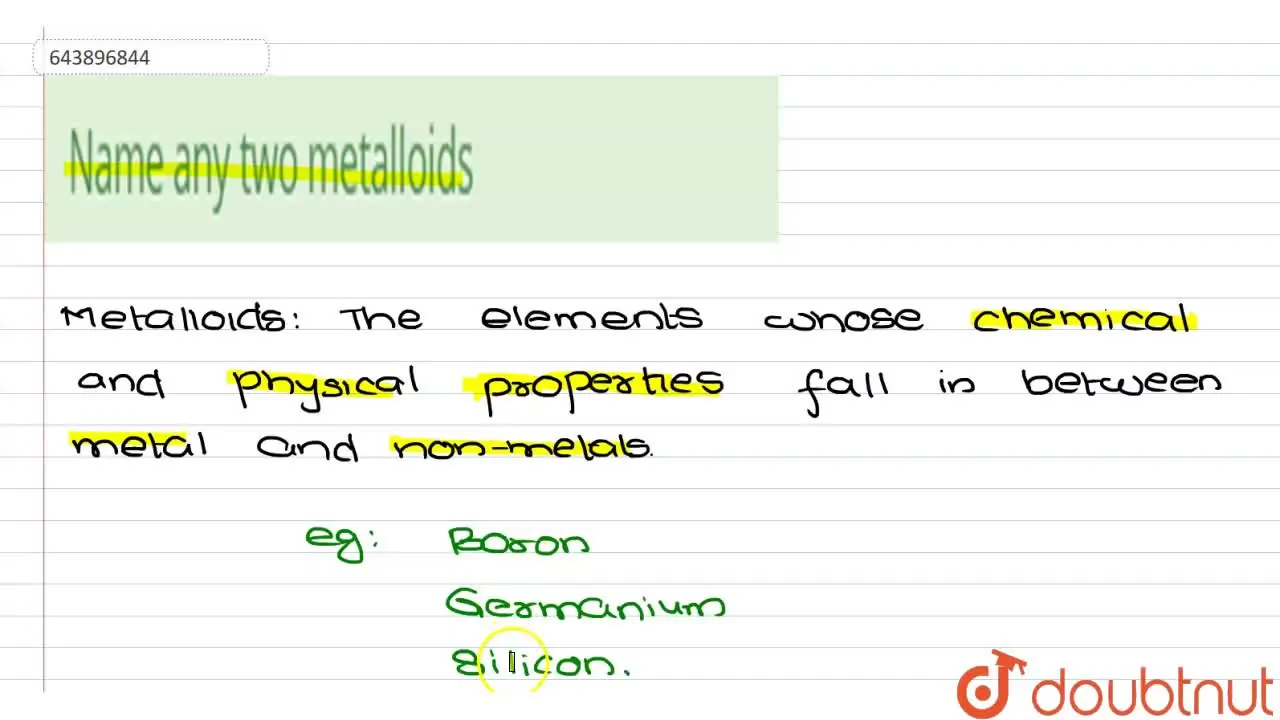 643896844
Name any two metalloids
Metalloids: The elements whose chemical
and physical properties fall in between
metal and non-metals.
eg: Boron
Germanium
Silicon.
doubtnut